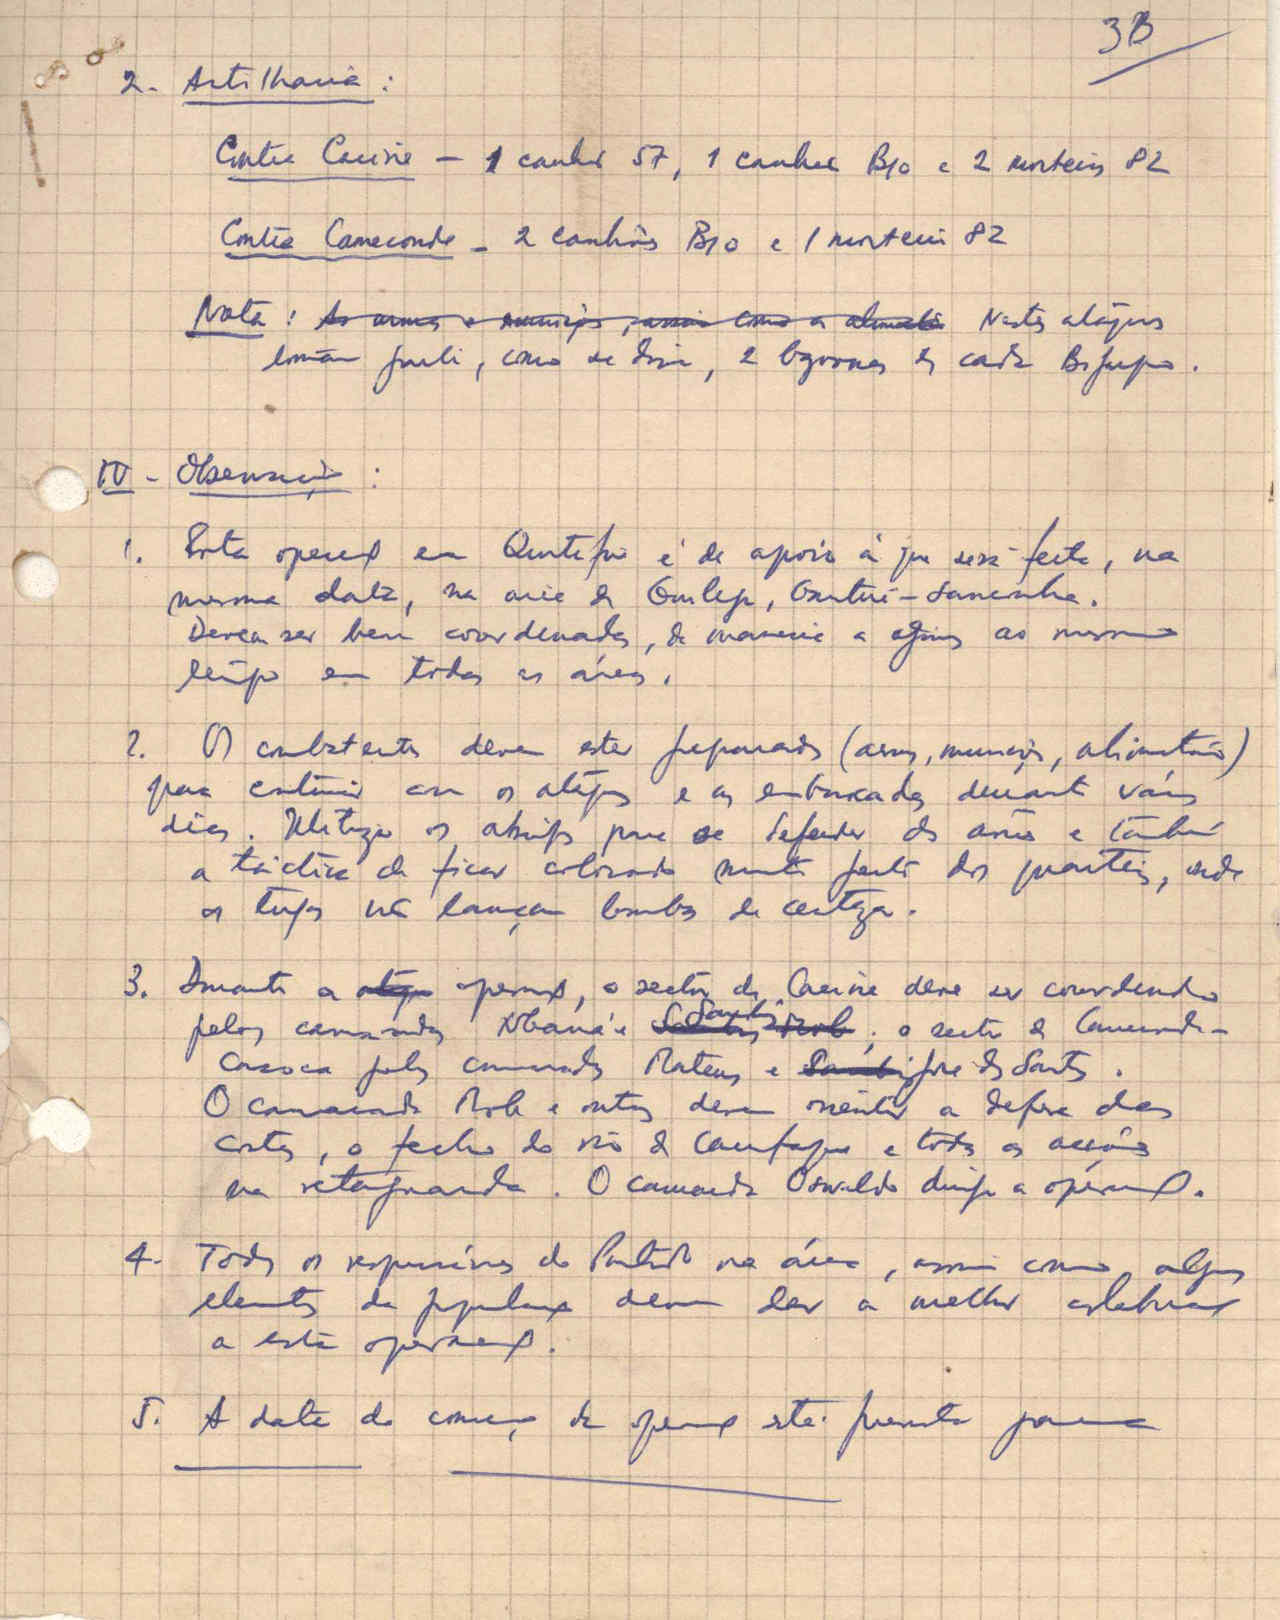 3B
2. Artilharia :
Contra Cacine — 1 canhão 57, 1 canhão B10 e 2 morteiros 82
Contra Cameconde — 2 canhões B10 e 1 morteiro 82
Nota : As armas e munições, assim como a alimentação Nestes ataques
tomam parte, como se disse, 2 bazookas de cada Bigrupo.
IV - Observações :
1. Esta operação em Quitafine é de apoio à que será feita, na
mesma data, na área de Guileje, Ganturé - Sanconha.
Devem ser bem coordenadas, de maneira a agirmos ao mesmo
tempo em todas as áreas.
2. Os combatentes devem estar preparados (armas, munições, alimentação)
para continuar com os ataques e as emboscadas durante vários
dias. Utilizar os abrigos para se defender dos aviões e também
a táctica de ficar colocado muito perto dos quarteis, onde
os tugas não lançam bombas de certeza.
3. Durante a ataque operação, o sector de Cacine deve ser coordenado
pelos camaradas Nbaná e Sambú ; o sector de Cameconde -
Cassaca pelos camaradas Mateus e José dos Santos.
O camarada Bobo e outros devem orientar a defesa das
costas, o fecho do rio de Camfaque e todas as acções
na retaguarda. O camarada Osvaldo dirige a operação.
4. Todos os responsáveis do Partido na área, assim como alguns
elementos da população devem dar a melhor colaboração
a esta operação.
5. A data do começo da operação está prevista para